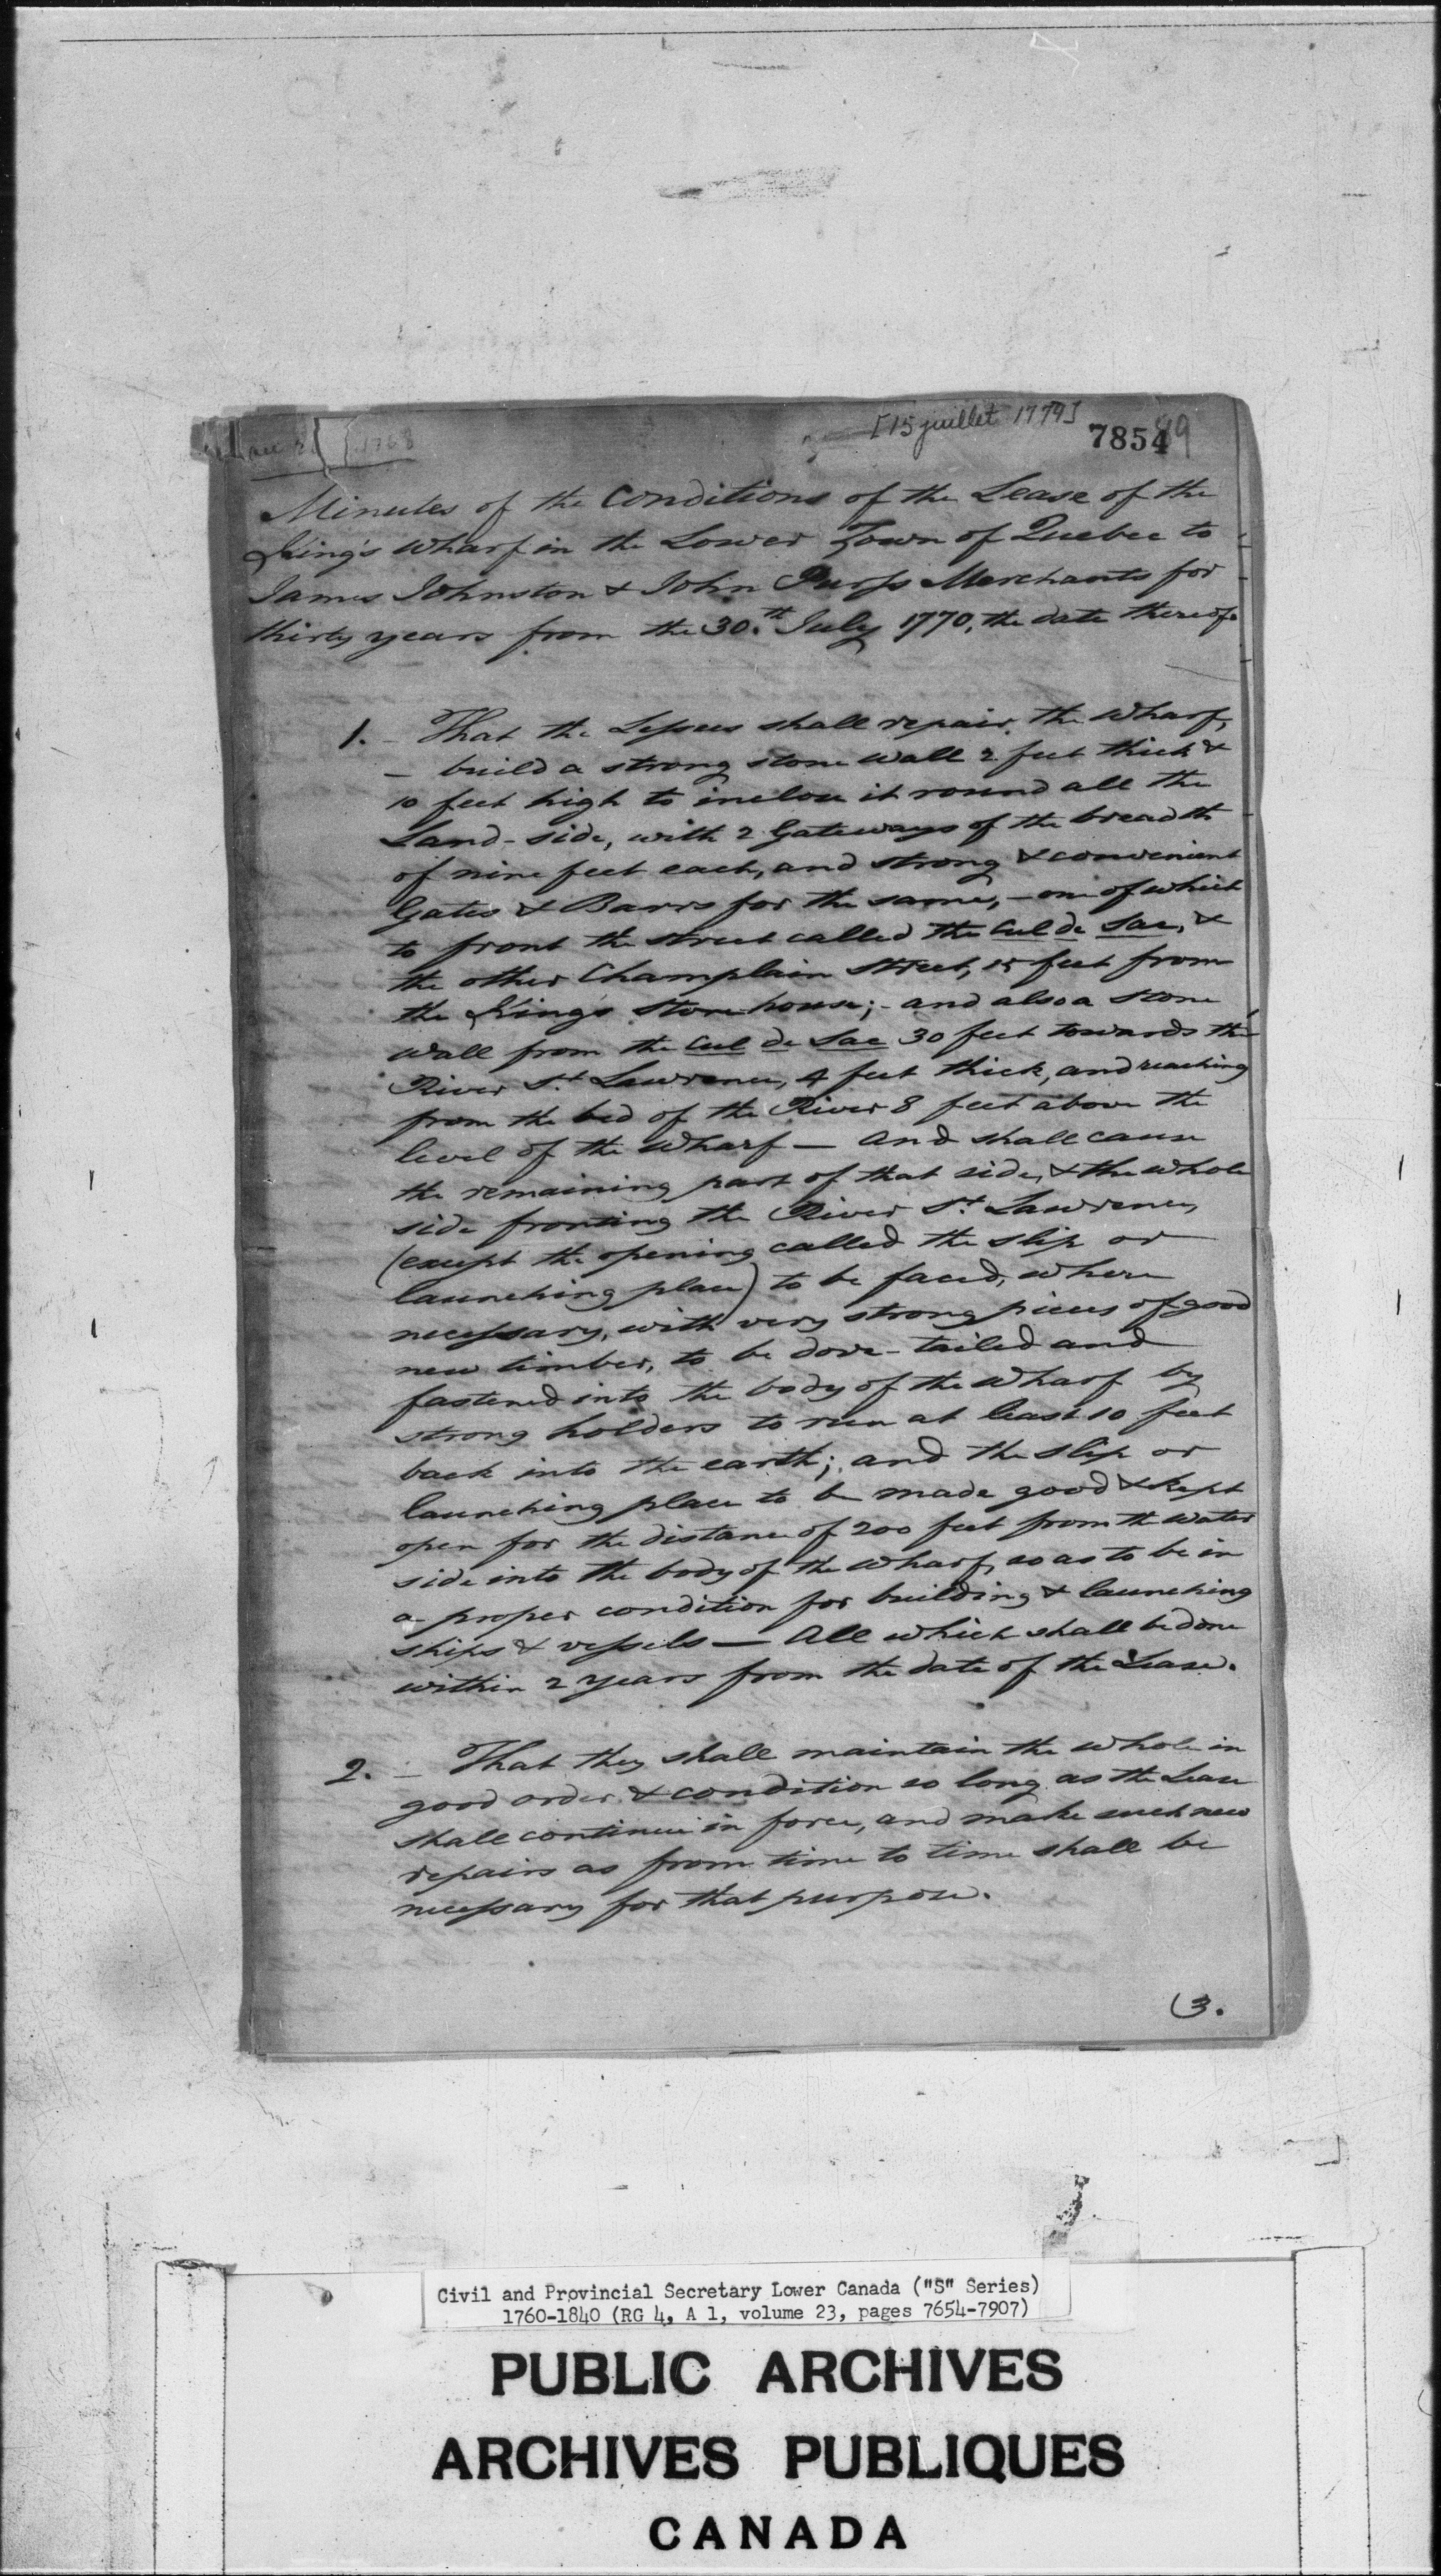 [15 juillet 1779]
7854
1768
Minutes of the Conditions of the Lease of the
King's Wharf in the Lower Town of Quebec to
James Johnston & John Purss Merchants for
thirty years from the 30.th July 1770, the date thereof.
1. – That the Lessees shall repair the Wharf,
– build a strong stone Wall 2 feet thick &
10 feet high to inclose it round all the
Land-side, with 2 Gateways of the breadth
of nine feet each, and strong & convenient
Gates & Barrs for the same, – one of which
to front the street called the Cul de Sac, &
the other Champlain Street, 15 feet from
the King's Storehouse; – and also a stone
Wall from the Cul de Sac 30 feet towards the
River St. Lawrence, 4 feet thick, and reaching
from the bed of the River 8 feet above the
level of the Wharf — And shall cause
the remaining part of that side, & the whole
side fronting the River St. Lawrence,
(except the opening called the slip or
launching place) to be faced, where
necessary, with very strong pieces of good
new timber, to be dove-tailed and
fastened into the body of the Wharf by
strong holders to run at least 10 feet
back into the earth; and the slip or
launching place to be made good & kept
open for the distance of 200 feet from the water
side into the body of the Wharf, so as to be in
a proper condition for building & launching
ships & vessels — All which shall be done
within 2 years from the date of the Lease.
2. – That they shall maintain the whole in
good order & condition so long as the Lease
shall continue in force, and make such new
repairs as from time to time shall be
necessary for that purpose.
(3.
Civil and Provincial Secretary Lower Canada ("S" Series)
1760-1840 (RG 4, A 1, volume 23, pages 7654-7907)
PUBLIC ARCHIVES
ARCHIVES PUBLIQUES
CANADA